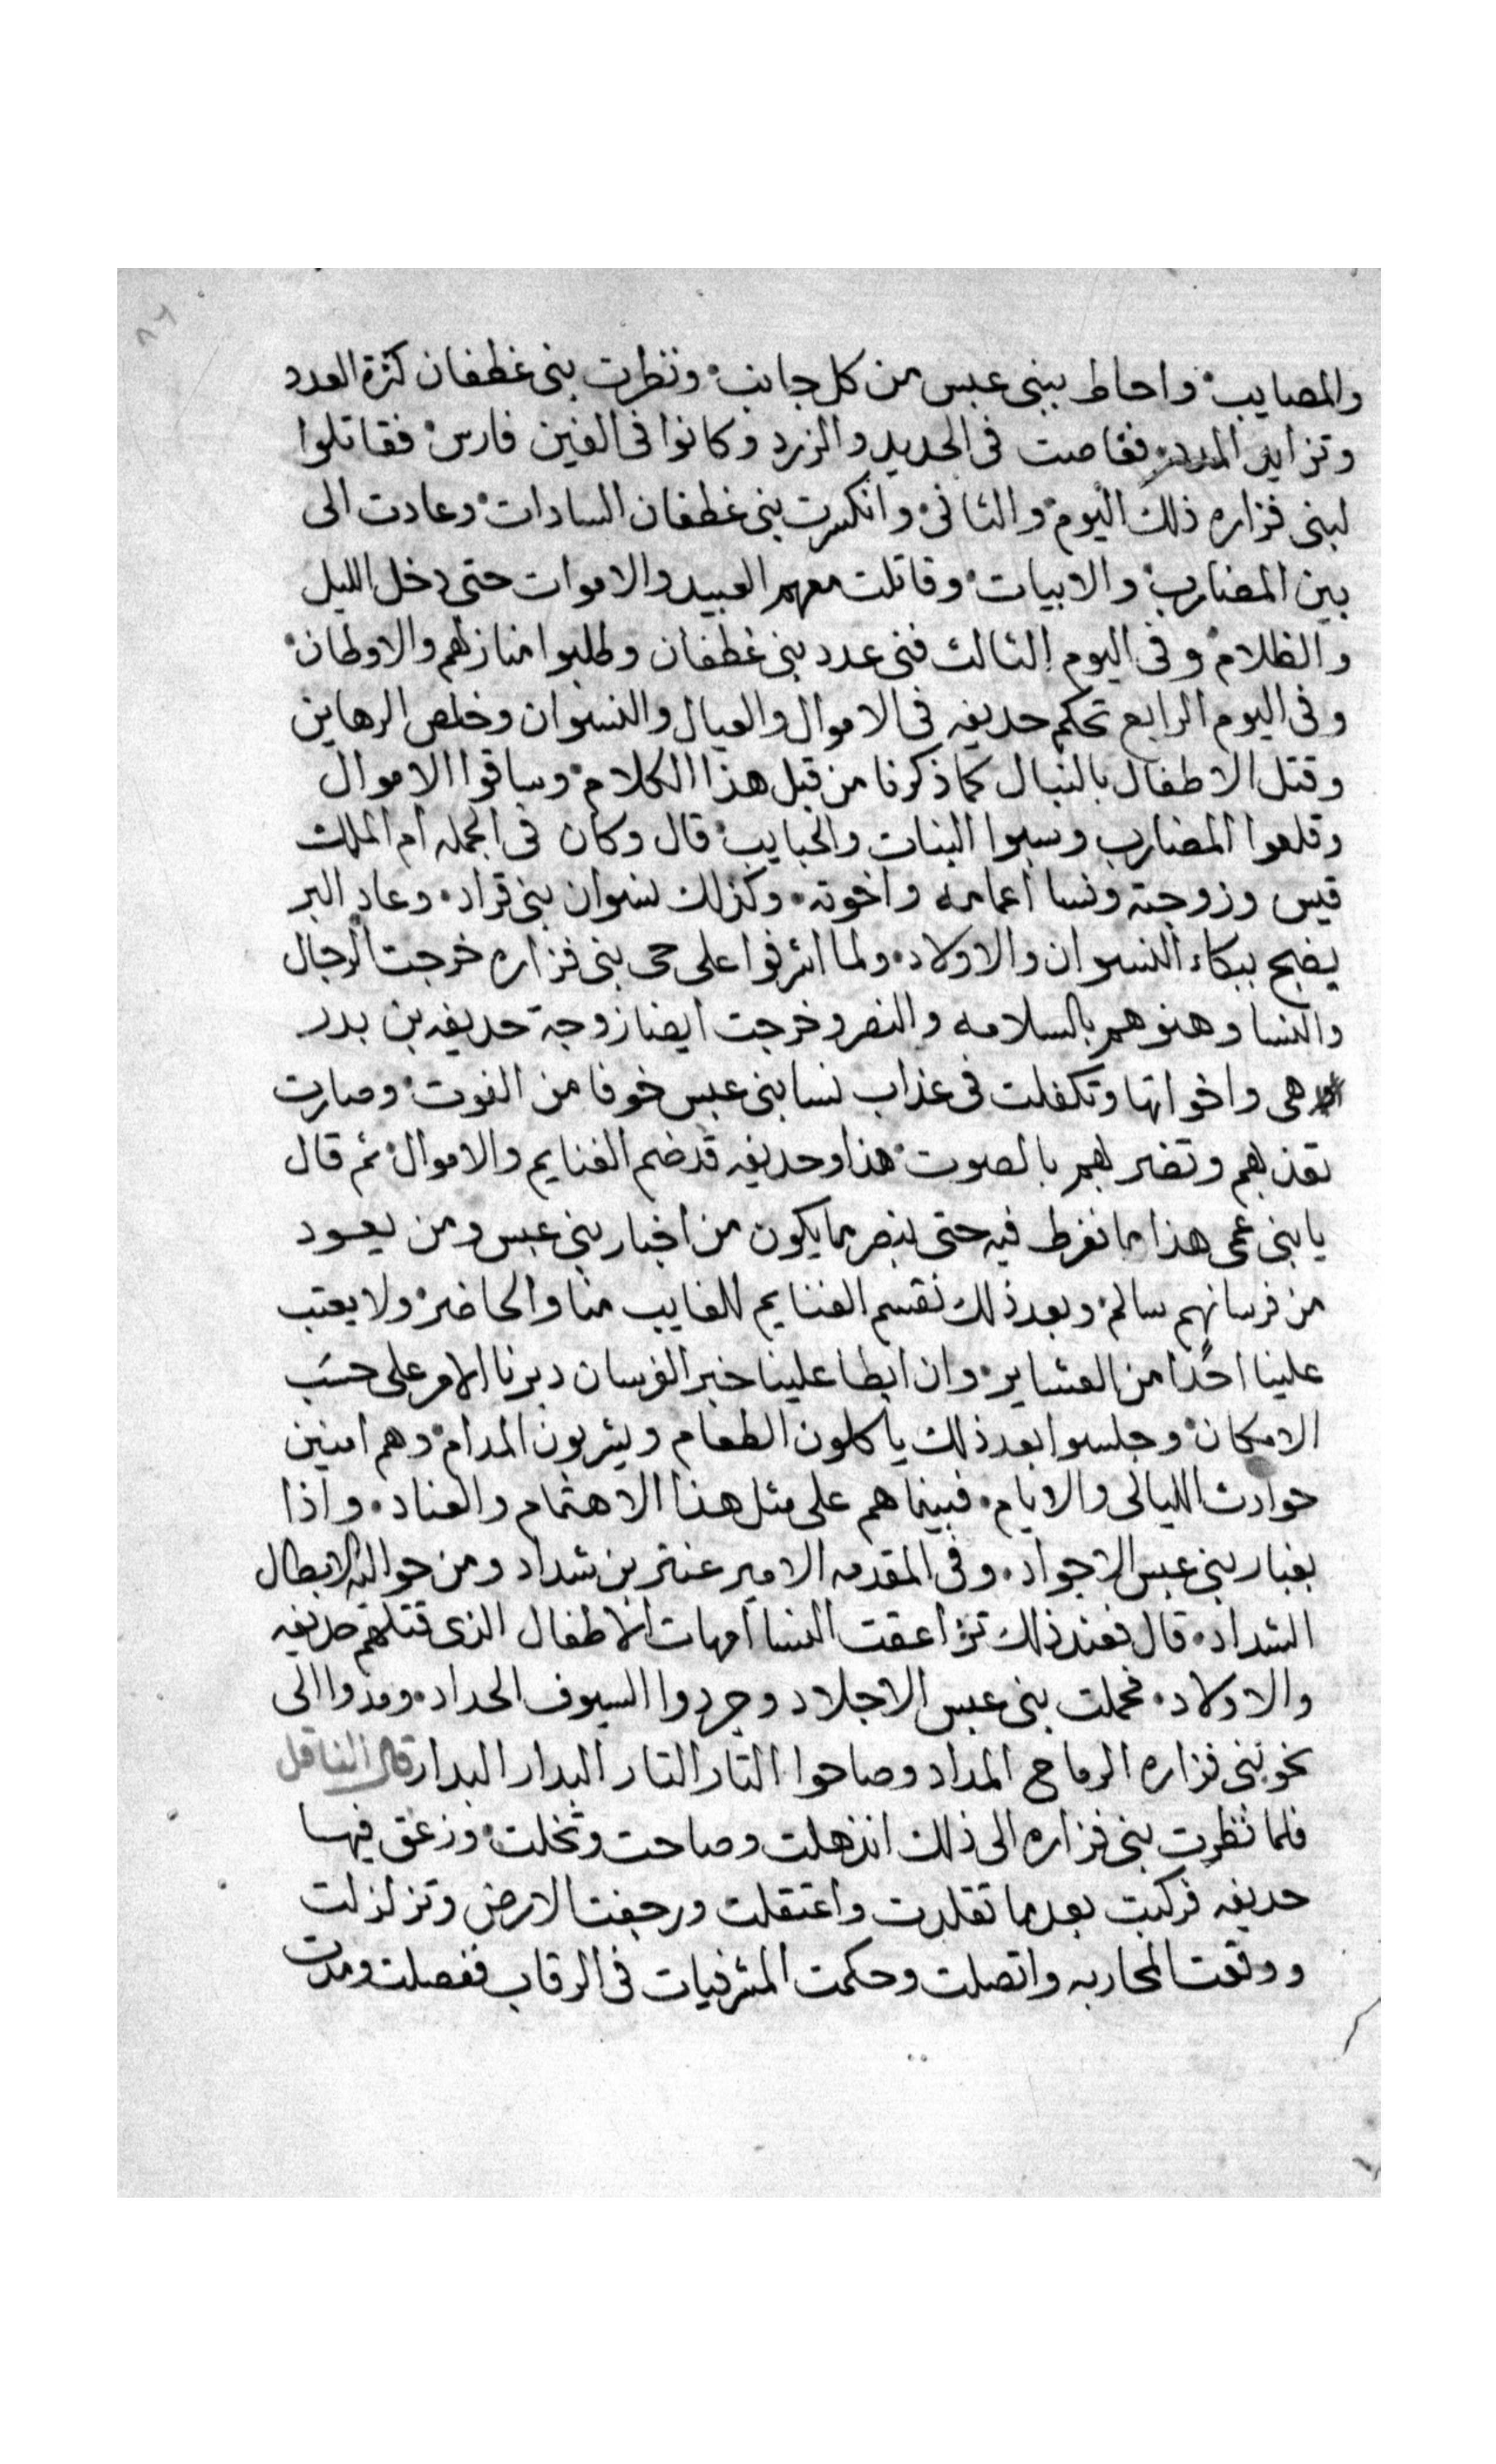 ٨٦
والمصايب۰ واحاط ببنى عبس من كل جانب۰ ونظرت بنى غطفان كثرة العدد
وتزايد المدد۰ فغاصت فى الحديد والزرد وكانوا فى الفين فارس۰ فقاتلوا
لبنى فزاره ذلك اليوم۰ والثانى۰ وانكسرت بنى غطفان السادات۰ وعادت الى
بين المضارب۰ والابيات۰ وقاتلت معهم العبيد والاموات حتى دخل الليل
والظلام۰ وفى اليوم الثالث فنى عدد بنى غطفان وطلبوا منازلهم والاوطان۰
وفى اليوم الرابع تحكم حديفه فى الاموال والعيال والنسوان وخلص الرهاين
وقتل الاطفال بالنبال كما ذكرنا من قبل هذا الكلام۰ وساقوا الاموال
وقلعوا المضارب وسبوا البنات والحبايب۰ قال وكان فى الجمله ام الملك
قيس وزوجته ونسا اعمامه واخوته۰ وكذلك نسوان بنى قراد۰ وعاد البر
يضج ببكاء النسوان والاولاد۰ ولما اشرفوا على حى بنى فزاره خرجت الرجال
والنسا وهنوهم بالسلامه والنصر وخرجت ايضا زوجة حديفه بن بدر
هى واخواتها وتكفلت فى عذاب نسا بنى عبس خوفا من الفوت۰ وصارت
تعذبهم وتضربهم بالصوت۰ هذا وحديفه قد ضم الغنايم والاموال۰ ثم قال
يا بنى عمى هذا ما نفرط فيه حتى نبصر ما يكون من اخبار بنى عبس ومن يعود
من فرسانهم سالم۰ وبعد ذلك نقسم الغنايم للغايب منا والحاضر۰ ولا يعتب
علينا احدًا من العشاير۰ وان ابطا علينا خبر الفرسان دبرنا الامر على حسَب
الامكان۰ وجلسوا بعد ذلك ياكلون الطعام ويشربون المدام۰ وهم امنين
حوادث الليالى والايام۰ فبينما هم على مثل هذا الاهتمام والعناد۰ واذا
بغبار بنى عبس الاجواد۰ وفى المقدمه الامير عنتر بن شداد ومن حواليه الابطال
الشداد۰ قال فعند ذلك تزاعقت النسا امهات الاطفال الذى قتلهم حديفه
والاولاد۰ فحملت بنى عبس الاجلاد وجردوا السيوف الحداد۰ ومدوا الى
نحو بنى فزاره الرماح المداد وصاحوا التار التار البدار البدار قال الناقل
فلما نظرت بنى فزاره الى ذلك انذهلت وصاحت ونخلت۰ وزعق فيها
حديفه فركبت بعدما تقلدت واعتقلت ورجفت الارض وتزلزلت
ووقعت المحاربه واتصلت وحكمت المشرفيات فى الرقاب ففصلت ومدت